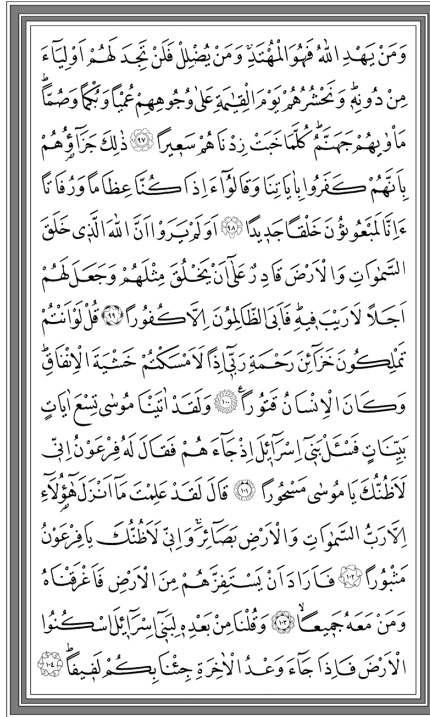 وَمَنْ يَهْدِ اللّٰهُ فَهُوَ الْمُهْتَدِۚ وَمَنْ يُضْلِلْ فَلَنْ تَجِدَ لَهُمْ اَوْلِيَٓاءَ
مِنْ دُونِه۪ۜ وَنَحْشُرُهُمْ يَوْمَ الْقِيٰمَةِ عَلٰى وُجُوهِهِمْ عُمْيًا وَبُكْمًا وَصُمًّاۜ
مَأْوٰيهُمْ جَهَنَّمُۜ كُلَّمَا خَبَتْ زِدْنَاهُمْ سَع۪يرًا ﴿٩٧﴾ ذٰلِكَ جَزَٓاؤُ۬هُمْ
بِاَنَّهُمْ كَفَرُوا بِاٰيَاتِنَا وَقَالُٓوا ءَاِذَا كُنَّا عِظَامًا وَرُفَاتًا
ءَاِنَّا لَمَبْعُوثُونَ خَلْقًا جَد۪يدًا ﴿٩٨﴾ اَوَلَمْ يَرَوْا اَنَّ اللّٰهَ الَّذ۪ي خَلَقَ
السَّمٰوَاتِ وَالْاَرْضَ قَادِرٌ عَلٰٓى اَنْ يَخْلُقَ مِثْلَهُمْ وَجَعَلَ لَهُمْ
اَجَلًا لَا رَيْبَ ف۪يهِۜ فَاَبَى الظَّالِمُونَ اِلَّا كُفُورًا ﴿٩٩﴾ قُلْ لَوْ اَنْتُمْ
تَمْلِكُونَ خَزَٓائِنَ رَحْمَةِ رَبّ۪ٓي اِذًا لَاَمْسَكْتُمْ خَشْيَةَ الْاِنْفَاقِۜ
وَكَانَ الْاِنْسَانُ قَتُورًا۟ ﴿١٠٠﴾ وَلَقَدْ اٰتَيْنَا مُوسٰى تِسْعَ اٰيَاتٍ
بَيِّنَاتٍ فَسْـَٔلْ بَن۪ٓي اِسْرَٓائ۪لَ اِذْ جَٓاءَهُمْ فَقَالَ لَهُ فِرْعَوْنُ اِنّ۪ي
لَاَظُنُّكَ يَا مُوسٰى مَسْحُورًا ﴿١٠١﴾ قَالَ لَقَدْ عَلِمْتَ مَٓا اَنْزَلَ هٰٓؤُ۬لَٓاءِ
اِلَّا رَبُّ السَّمٰوَاتِ وَالْاَرْضِ بَصَٓائِرَۚ وَاِنّ۪ي لَاَظُنُّكَ يَا فِرْعَوْنُ
مَثْبُورًا ﴿١٠٢﴾ فَاَرَادَ اَنْ يَسْتَفِزَّهُمْ مِنَ الْاَرْضِ فَاَغْرَقْنَاهُ
وَمَنْ مَعَهُ جَم۪يعًاۙ ﴿١٠٣﴾ وَقُلْنَا مِنْ بَعْدِه۪ لِبَن۪ٓي اِسْرَٓائ۪لَ اسْكُنُوا
الْاَرْضَ فَاِذَا جَٓاءَ وَعْدُ الْاٰخِرَةِ جِئْنَا بِكُمْ لَف۪يفًاۜ ﴿١٠٤﴾